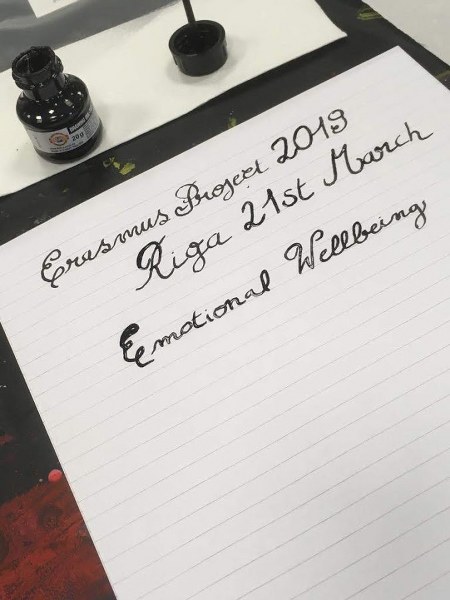 20g
Erasmus Project 2019
Riga 21st March
Emotional Wellbeing